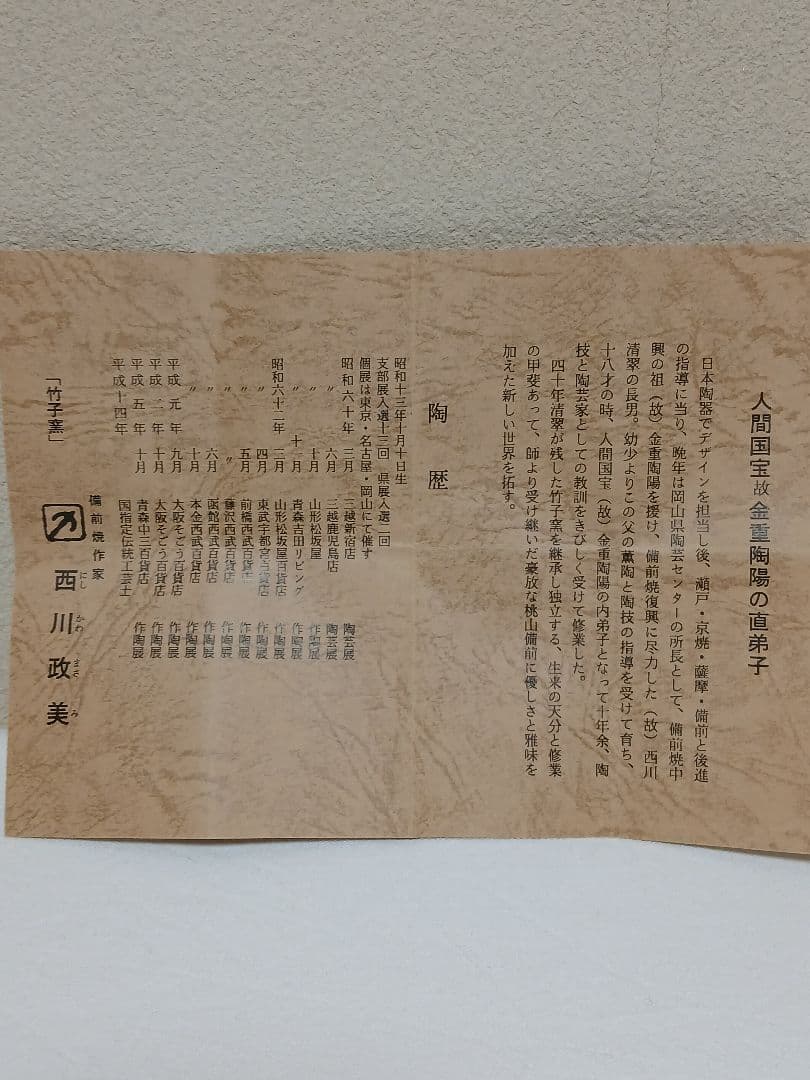 人間国宝故金重陶陽の直弟子
日本陶器でデザインを担当し後、瀬戸・京焼・薩摩・備前と後進
の指導に当り、晩年は岡山県陶芸センターの所長として、備前焼中
興の祖(故)金重陶陽を援け、備前焼復興に尽力した(故)西川
清翠の長男。幼少よりこの父の薫陶と陶技の指導を受けて育ち、
十八才の時、人間国宝(故)金重陶陽の内弟子となって十年余、陶
技と陶芸家としての教訓をきびしく受けて修業した。
四十年清翠が残した竹子窯を継承し独立する、生来の天分と修業
の甲斐あって、師より受け継いだ豪放な桃山備前に優しさと雅味を
加えた新しい世界を拓す。
陶歴
昭和十三年十月十日生
支部展入選十三回 県展入選二回
個展は東京・名古屋・岡山にて催す
昭和六十年 三月 三越新宿店 陶芸展
〃 六月 三越鹿児島店 陶芸展
〃 十月 山形松坂屋 作陶展
〃 十一月 青森吉田リビング 作陶展
昭和六十二年 二月 山形松坂屋百貨店 作陶展
〃 四月 東武宇都宮百貨店 作陶展
〃 五月 前橋西武百貨店 作陶展
〃 〃 藤沢西武百貨店 作陶展
〃 六月 函館西武百貨店 作陶展
〃 十月 本金西武百貨店 作陶展
平成元年 九月 大阪そごう百貨店 作陶展
平成二年 十月 大阪そごう百貨店 作陶展
平成五年 十月 青森中三百貨店 作陶展
平成十四年 国指定伝統工芸士
備前焼作家
西川政美
にしかわまさみ
「竹子窯」